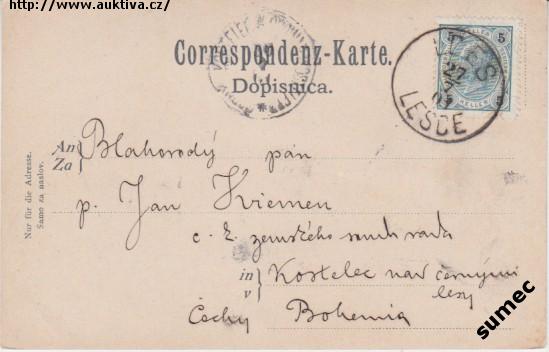 http://www.auktiva.cz/
Correspondenz-Karte.
Dopisnica.
5 5
LESCE
27
An
Za
Blahorodý pán
p. Jan Kviemen
c. k. zemského soudu rada
in
v
Kostelec nad černými
lesy
Čechy Bohemia
Nur für die Adresse.
Samo za naslov.
sumec